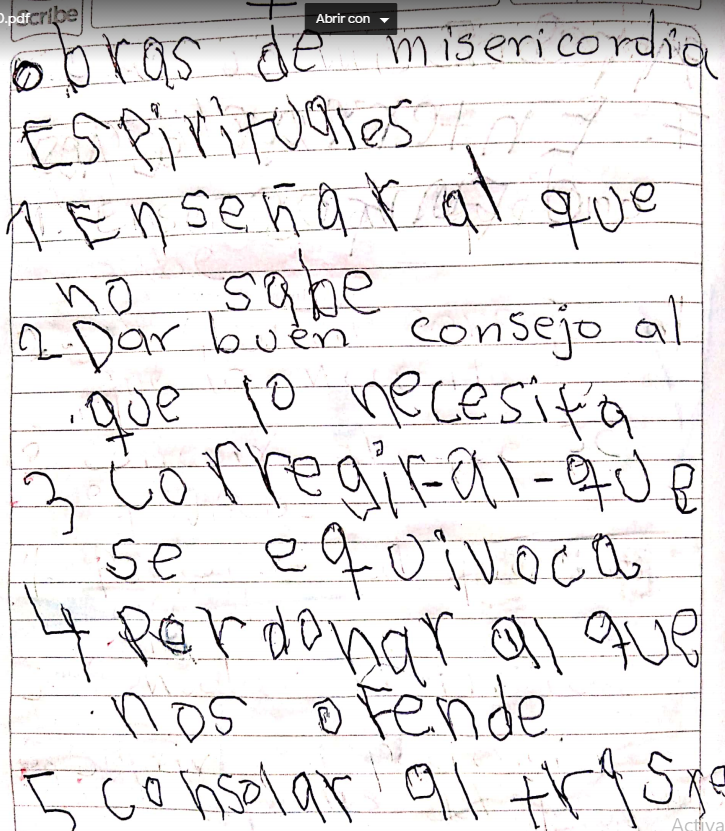 D.pdf
Abrir con
Scribe
obras de misericordia
ESPirituales
1 Enseñar al que
no sabe
2 Dar buen consejo al
que lo necesita
3 Corregir-al-que
se equivoca
4 Perdonar al que
nos ofende.
5 consolar al
Activa